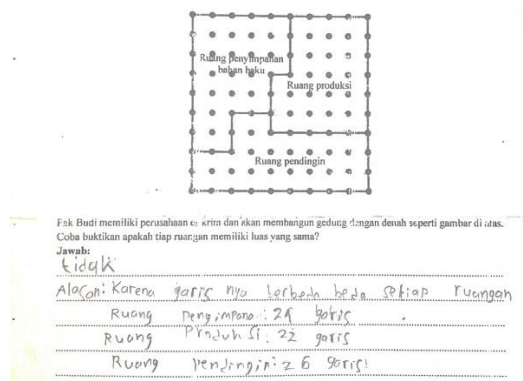 Ruang penyimpanan
bahan baku
Ruang produksi
Ruang pendingin
Pak Budi memiliki perusahaan es krim dan akan membangun gedung dengan denah seperti gambar di atas.
Coba buktikan apakah tiap ruangan memiliki luas yang sama?
Jawab:
tidak
Alasan: Karena garis nya berbeda beda setiap ruangan
Ruang Penyimpana: 24 garis
Ruang Produksi: 22 garis
Ruang Pendingin: 26 garis